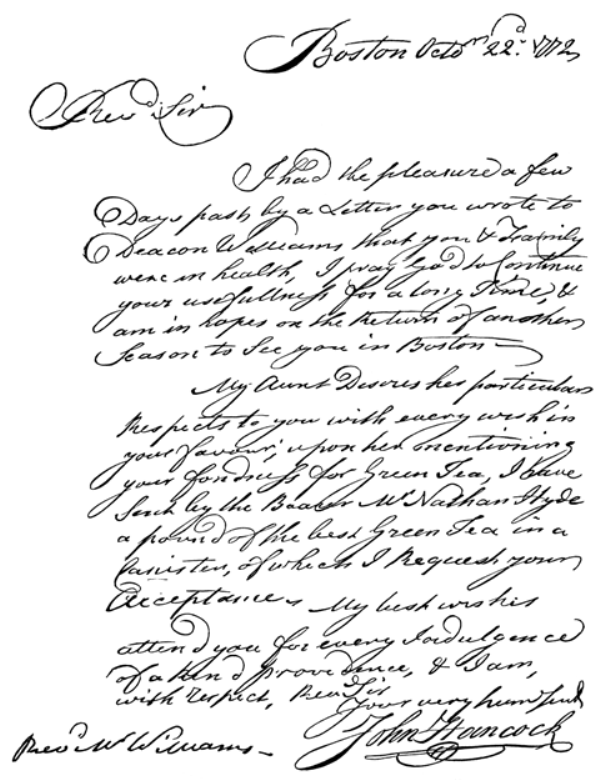 Boston Octoʳ 22ᵈ. 1772,
Revᵈ Sir
I had the pleasure a few
Days past by a Letter you wrote to
Deacon Williams that you & Family
were in health, I pray God to Continue
your usefullness for a long Time, &
am in hopes on the Return of another
Season to See you in Boston —
My Aunt Desires her particular
Respects to you with every wish in
your favour; upon her mentioning
your fondness for Green Tea, I have
Sent by the Bearer Mʳ Nathan Hyde
a pound of the best Green Tea in a
Canister, of which I Request your
Acceptance. My best wishes
attend you for every Indulgence
of a kind providence, & I am,
with respect, Revᵈ Sir
Your very humˡ Servᵗ
John Hancock
Revᵈ Mʳ Williams —